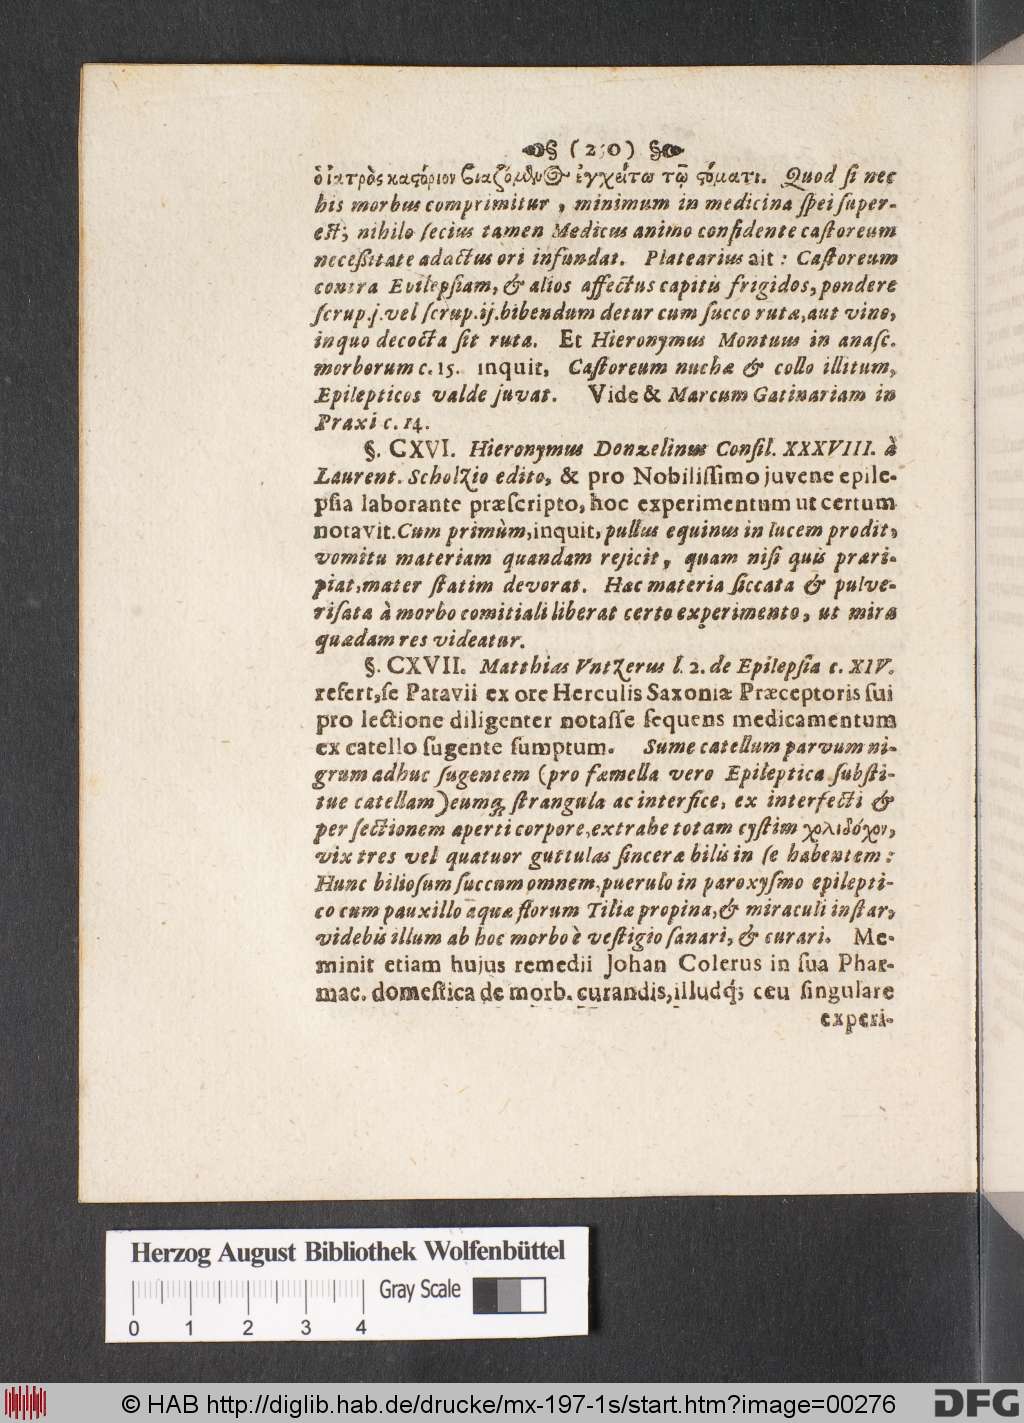 § (250) §
ὁ ἰατρὸς καςόριον βιαζόμενος ἐγχείτω τῷ ςόματι. Quod ſi nec
his morbus comprimitur, minimum in medicina ſpei ſuper-
eſt; nihilo ſecius tamen Medicus animo confidente caſtoreum
neceßitate adactus ori infundat. Platearius ait: Caſtoreum
contra Epilepſiam, & alios affectus capitis frigidos, pondere
ſcrup.j. vel ſcrup.ij. bibendum detur cum ſucco rutæ, aut vino,
in quo decocta ſit ruta. Et Hieronymus Montuus in anaſc.
morborum c. 15. inquit, Caſtoreum nuchæ & collo illitum,
Epilepticos valde juvat. Vide & Marcum Gatinariam in
Praxi c. 14.
§. CXVI. Hieronymus Donzelinus Conſil. XXXVIII. à
Laurent. Scholzio edito, & pro Nobiliſſimo juvene epile-
pſia laborante præſcripto, hoc experimentum ut certum
notavit. Cum primùm, inquit, pullus equinus in lucem prodit,
vomitu materiam quandam rejicit, quam niſi quis præri-
piat, mater ſtatim devorat. Hac materia ſiccata & pulve-
riſata à morbo comitiali liberat certo experimento, ut mira
quædam res videatur.
§. CXVII. Matthias Vntzerus l. 2. de Epilepſia c. XIV.
refert, ſe Patavii ex ore Herculis Saxoniæ Præceptoris ſui
pro lectione diligenter notaſſe ſequens medicamentum
ex catello ſugente ſumptum. Sume catellum parvum ni-
grum adhuc ſugentem (pro fæmella vero Epileptica ſubſti-
tue catellam) eumq; ſtrangula ac interfice, ex interfecti &
per ſectionem aperti corpore, extrahe totam cyſtim χολιδόχον,
vix tres vel quatuor guttulas ſinceræ bilis in ſe habentem:
Hunc bilioſum ſuccum omnem, puerulo in paroxyſmo epilepti-
co cum pauxillo aquæ florum Tiliæ propina, & miraculi inſtar,
videbis illum ab hoc morbo è veſtigio ſanari, & curari. Me-
minit etiam hujus remedii Johan Colerus in ſua Phar-
mac. domeſtica de morb. curandis, illudq́; ceu ſingulare
experi-
Herzog August Bibliothek Wolfenbüttel
Gray Scale
0 1 2 3 4
© HAB http://diglib.hab.de/drucke/mx-197-1s/start.htm?image=00276
DFG